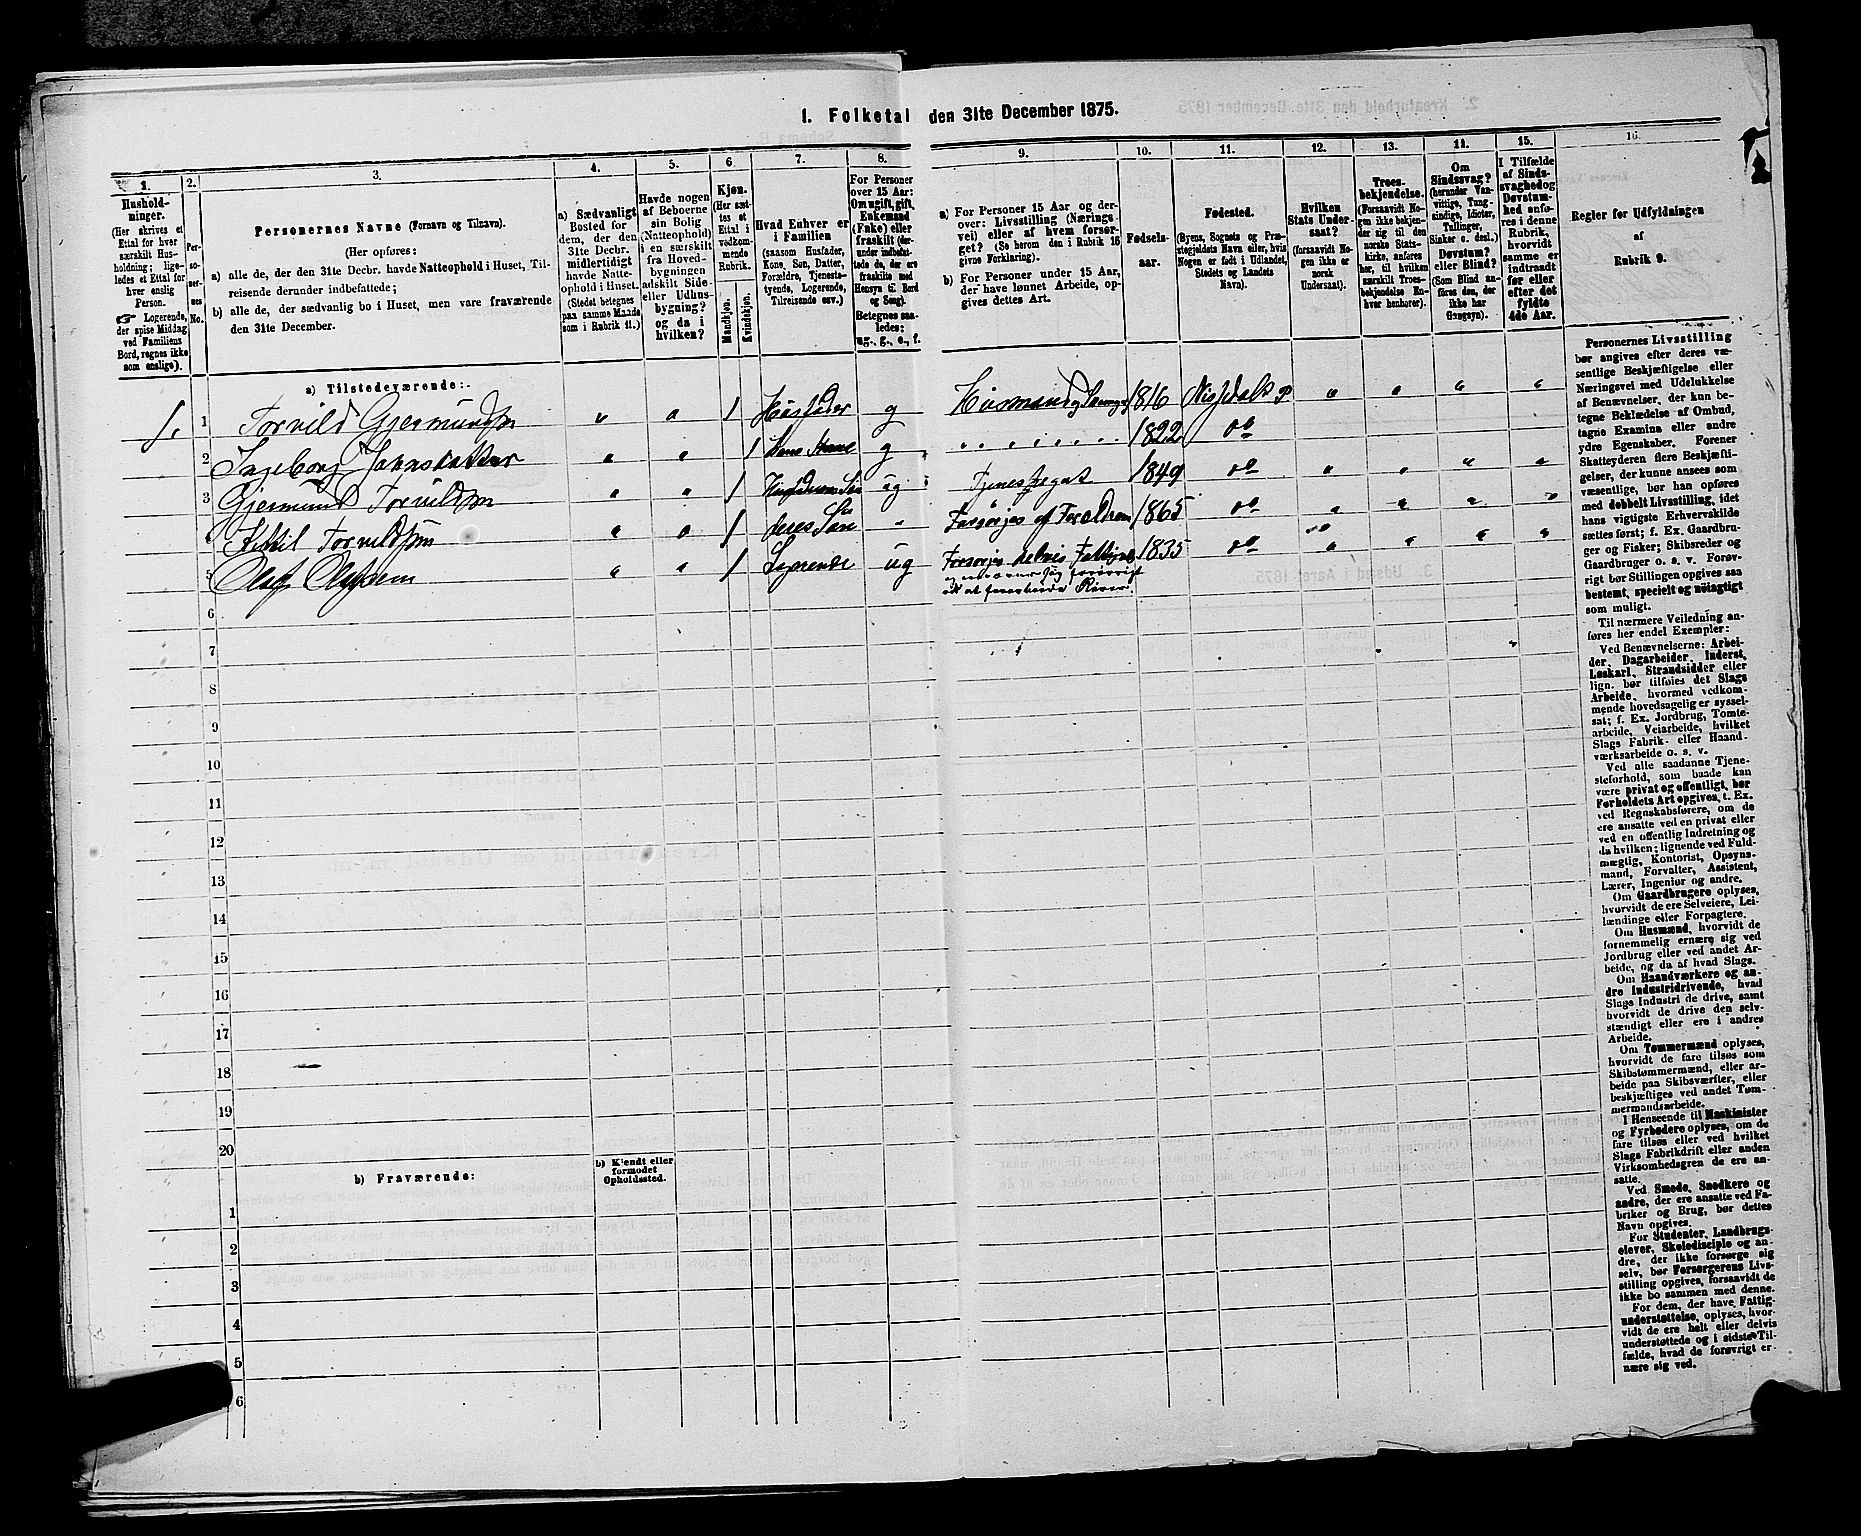 1. Folketal den 31te December 1875.
1. 2. 3. 4. 5. 6. 7. 8. 9. 10. 11. 12. 13. 14. 15. 16.
Hushold-
ninger.
(Her skrives et
Ettal for hver
særskilt Hus-
holdning; lige-
ledes et Ettal for
hver enslig
Person.
☞ Logerende,
der spise Middag
ved Familiens
Bord, regnes ikke
som enslige).
Per-
so-
ner-
nes
No.
Personernes Navne (Fornavn og Tilnavn).
(Her opføres:
a) alle de, der den 31te Decbr. havde Natteophold i Huset, Til-
reisende derunder indbefattede;
b) alle de, der sædvanlig bo i Huset, men vare fraværende
den 31te December.
a) Sædvanligt
Bosted for
dem, der den
31te Decbr.
midlertidigt
havde Natte-
ophold i Huset.
(Stedet betegnes
paa samme Maade
som i Rubrik 11.)
Havde nogen
af Beboerne
sin Bolig
(Natteophold)
i en særskilt
fra Hoved-
bygningen
adskilt Side-
eller Udhus-
bygning?
og da i
hvilken?
Kjøn.
(Her sæt-
tes et
Ettal i
vedkom-
mende
Rubrik.
Mandkjøn.
Kvindekjøn.
Hvad Enhver er
i Familien
(saasom Husfader,
Kone, Søn, Datter,
Forældre, Tjeneste-
tyende, Logerende,
Tilreisende osv.)
For Personer
over 15 Aar:
Om ugift, gift,
Enkemand
(Enke) eller
fraskilt (der-
under indbefat-
tede de, der ere
fraskilte med
Hensyn til Bord
og Seng).
Betegnes saa-
ledes:
ug., g., e., f.
a) For Personer 15 Aar og der-
over: Livsstilling (Nærings-
vei) eller af hvem forsør-
get? (Se herom den i Rubrik 16
givne Forklaring).
b) For Personer under 15 Aar,
der have lønnet Arbeide, op-
gives dettes Art.
Fødsels-
aar.
Fødested.
(Byens, Sognets og Præ-
stegjeldets Navn eller, hvis
Nogen er født i Udlandet,
Stedets og Landets
Navn).
Hvilken
Stats Under-
saat?
(forsaavidt No-
gen ikke er
norsk
Undersaat).
Troes-
bekjendelse.
(Forsaavidt No-
gen ikke bekjen-
der sig til den
norske Stats-
kirke, anføres
her, til hvilken
særskilt Troes-
bekjendelse En-
hver henhører).
Om
Sindssvag?
(herunder Van-
vittige, Tung-
sindige, Idioter,
Tullinger,
Sinker o. desl.)
Døvstum?
eller Blind?
(Som Blind an-
føres den, der
ikke har
Gangsyn).
I Tilfælde
af Sinds-
svaghed og
Døvstum-
hed anfø-
res i denne
Rubrik,
hvorvidt
samme er
indtraadt
før eller
efter det
fyldte
4de Aar.
Regler for Udfyldningen
af
Rubrik 9.
a) Tilstedeværende:
1. 1 Torvild Gjermundsn " " 1 Husfader g 1816 " " " "
2 Ingeborg Johnsdatter " " 1 Hans Kone g " " " " " " 1822 do
3 Gjermund Torvildsn " " 1 ug 1849 do " " " "
Torvildsøn " " 1 deres Søn - Forsørjes af Foreldrene 1865 do " " " "
5 Olaf Olafsen " " 1 Logerende ug Forsørjes delvis 1835 do " " " "
6
7
8
9
10
11
12
13
14
15
16
17
18
19
20
b) Fraværende:
b) Kjendt eller
formodet
Opholdssted.
1
2
3
4
5
6
Personernes Livsstilling
bør angives efter deres væ-
sentlige Beskjæftigelse eller
Næringsvei med Udelukkelse
af Benævnelser, der kun be-
tegne Beklædelse af Ombud,
tagne Examina eller andre
ydre Egenskaber. Forener
Skatteyderen flere Beskjæfti-
gelser, der kunne ansees som
væsentlige, bør han opføres
med dobbelt Livsstilling, idet
hans vigtigste Erhvervskilde
sættes først; f. Ex. Gaardbru-
ger og Fisker; Skibsreder og
Gaardbruger o. s. v. Forøv-
rigt bør Stillingen opgives saa
bestemt, specielt og nøiagtigt
som muligt.
Til nærmere Veiledning an-
føres her endel Exempler:
Ved Benævnelserne: Arbei-
der, Dagarbeider, Inderst,
Løskarl, Strandsidder eller
lign. bør tilføies det Slags
Arbeide, hvormed vedkom-
mende hovedsagelig er syssel-
sat; f. Ex. Jordbrug, Tomte-
arbeide, Veiarbeide, hvilket
Slags Fabrik- eller Haand-
værksarbeide o. s. v.
Ved alle saadanne Tjene-
steforhold, som baade kan
være privat og offentligt, bør
Forholdets Art opgives, t. Ex.
ved Regnskabsførere, om de
ere ansatte ved en privat eller
ved en offentlig Indretning og
da hvilken; lignende ved Fuld-
mægtig, Kontorist, Opsyns-
mand, Forvalter, Assistent,
Lærer, Ingeniør og andre.
Om Gaardbrugere oplyses,
hvorvidt de ere Selveiere, Lei-
lændinge eller Forpagtere.
Om Husmænd, hvorvidt de
fornemmelig ernære sig ved
Jordbrug eller ved andet Ar-
beide, og da af hvad Slags.
Om Haandværkere og an-
dre Industridrivende, hvad
Slags Industri de drive, samt
hvorvidt de drive den selv-
stændigt eller ere i andres
Arbeide.
Om Tømmermænd oplyses,
hvorvidt de fare tilsøs som
Skibstømmermænd, eller ar-
beide paa Skibsværfter, eller
beskjæftiges ved andet Tøm-
mermandsarbeide.
I Henseende til Maskinister
og Fyrbødere oplyses, om de
fare tilsøs eller ved hvilket
Slags Fabrikdrift eller anden
Virksomhedsgren de ere an-
satte.
Ved Smede, Snedkere og
andre, der ere ansatte ved Fa-
briker og Brug, bør dettes
Navn opgives.
For Studenter, Landbrugs-
elever, Skoledisciple og an-
dre, der ikke forsørge sig
selv, bør Forsørgerens Livs-
stilling opgives, forsaavidt de
ikke bo sammen med denne.
For dem, der have Fattig-
understøttelse, oplyses, hvor-
vidt de ere helt eller delvis
understøttede og i sidste Til-
fælde, hvad de forøvrigt er-
nære sig ved.